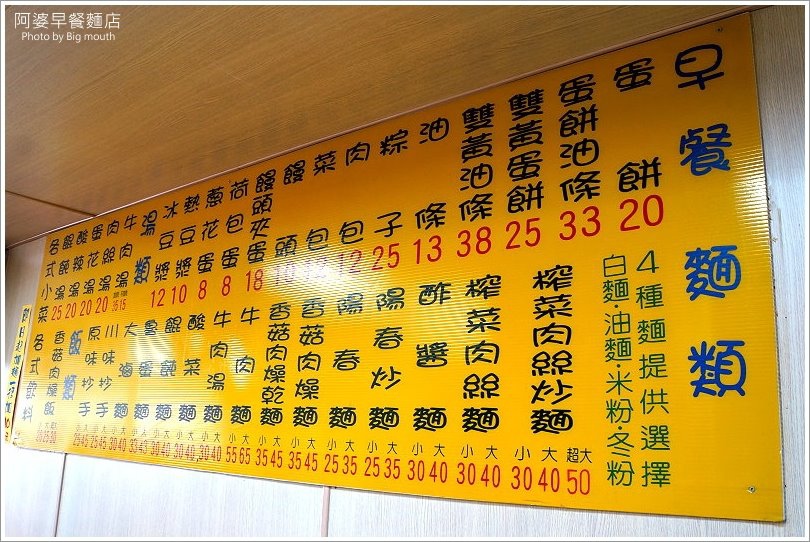 阿婆早餐麵店
Photo by Big mouth
早餐麵類
蛋餅 20
蛋餅油條 33
雙黃蛋餅 25
雙黃油條 38
油條 13
粽子 25
肉包 12
菜包
饅頭
饅頭夾蛋 18
荷包蛋 8
蔥花蛋 8
熱豆漿 10
冰豆漿 12
湯類
牛肉湯
肉絲湯
蛋花湯 20
酸辣湯 20
餛飩湯 25
各式小菜
4種麵提供選擇
白麵·油麵·米粉·冬粉
榨菜肉絲炒麵 小30 大40 超大50
榨菜肉絲麵 小30 大40
酢醬麵 小30 大40
陽春炒麵 小25 大35
陽春麵 小25 大35
香菇肉燥麵 小35 大45
香菇肉燥乾麵 小35 大45
牛肉麵 小55 大65
牛肉湯麵 小30 大40
酸菜麵 30 40
餛飩麵 30 40
魯蛋麵 30 40
大滷麵
川味抄手
原味抄手
飯類
香菇肉燥飯
各式飲料